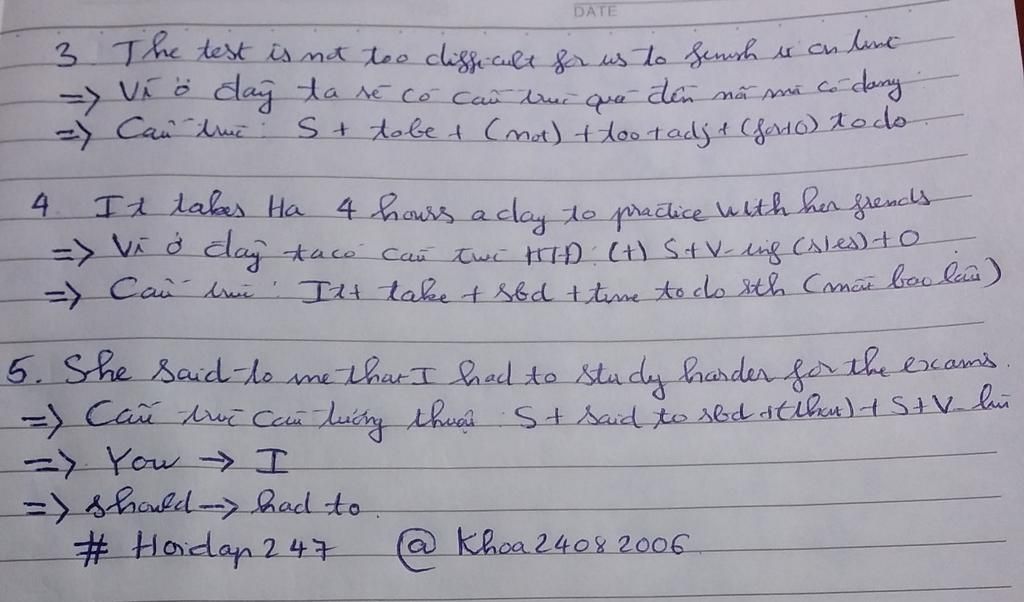 DATE
3 The test is not too difficult for us to finish it on time
=> Vì ở đây ta sẽ có cấu trúc quá đến nỗi mà có dạng
=> Cấu trúc : S + tobe + (not) + too + adj + (for+O) to do
4. It takes Ha 4 hours a day to practice with her friends
=> Vì ở đây ta có cấu trúc HTĐ: (+) S + V-ing (s/es) + O
=> Cấu trúc : It + take + sbd + time to do sth (mất bao lâu)
5. She said to me that I had to study harder for the exams.
=> Cấu trúc câu tường thuật : S + said to sbd + (that) + S + V-lùi
=> You → I
=> should → had to.
# Hoidap247 @ Khoa24082006